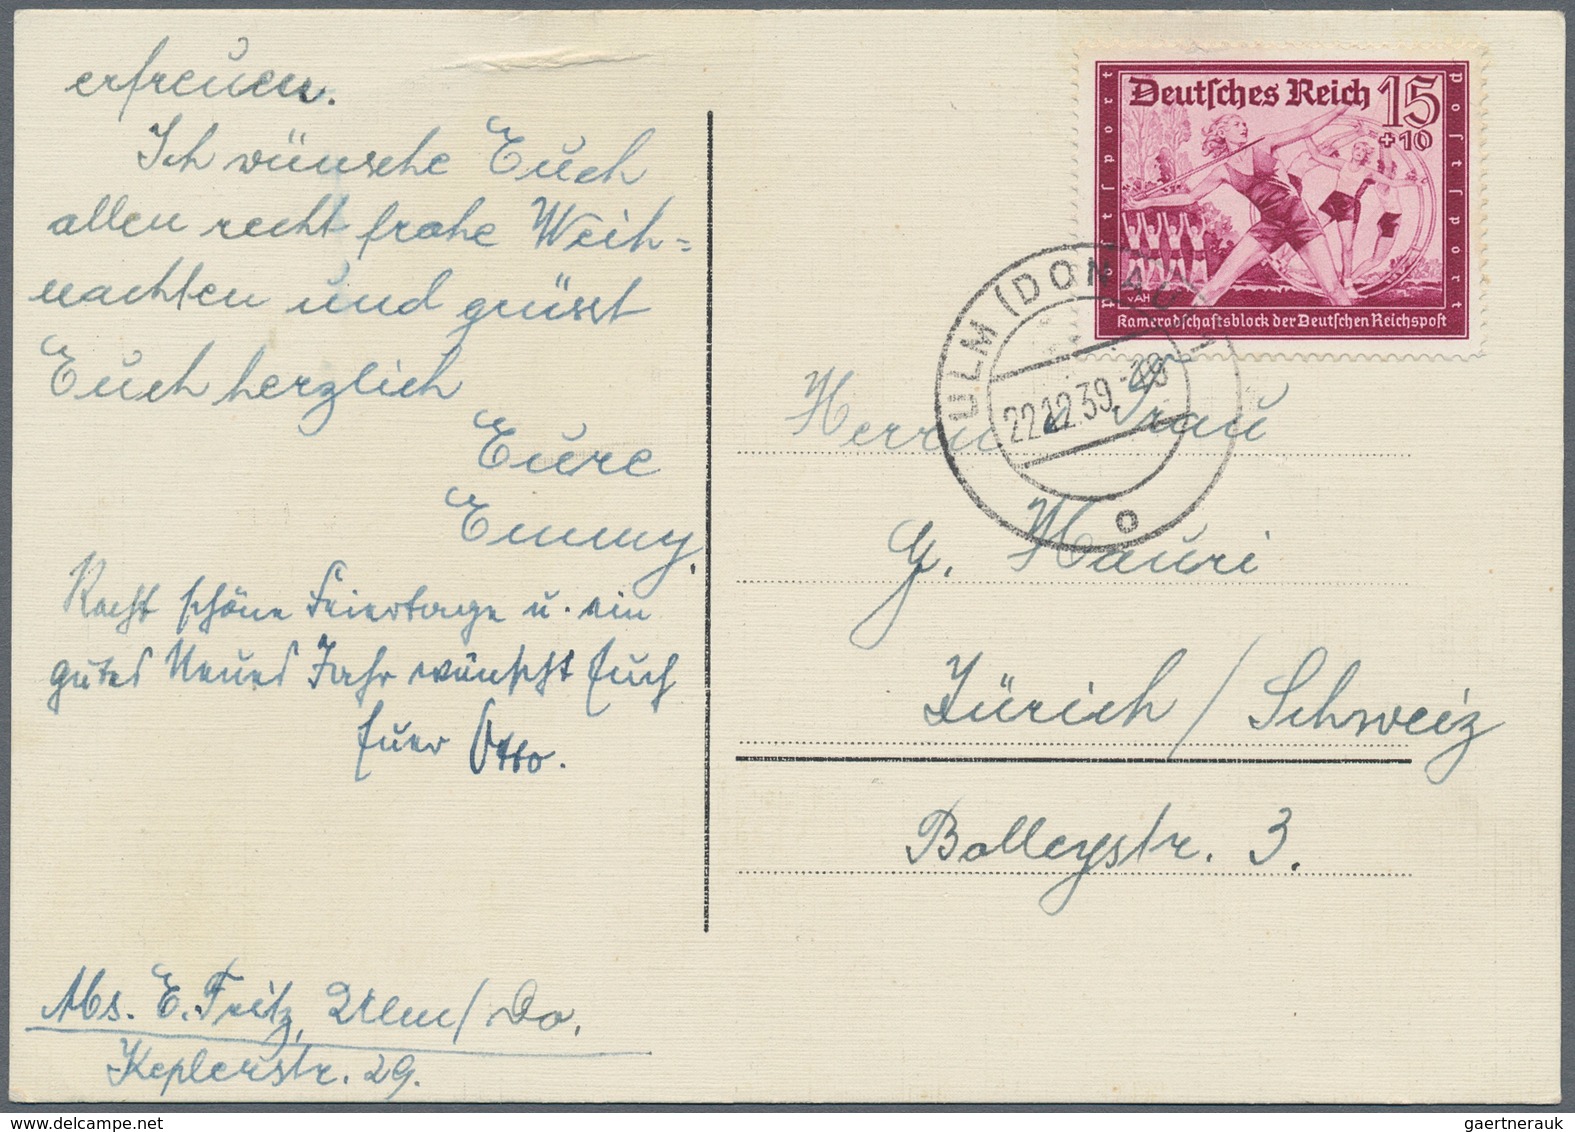 erfreuen.
Ich wünsche Euch
allen recht frohe Weih=
nachten und grüsst
Euch herzlich
Eure
Emmy.
Recht schöne Feiertage u. ein
gutes Neues Jahr wünscht Euch
Euer Otto.
Abs. E. Fritz, Ulm/Do.
Keplerstr. 29.
Deutsches Reich 15
+10
Postsport
Postsport
Kameradschaftsblock der Deutschen Reichspost
ULM (DONAU)
22.12.39.-18
o
Herrn u. Frau
G. Mauri
Zürich / Schweiz
Bolleystr. 3.
gaertnerauk